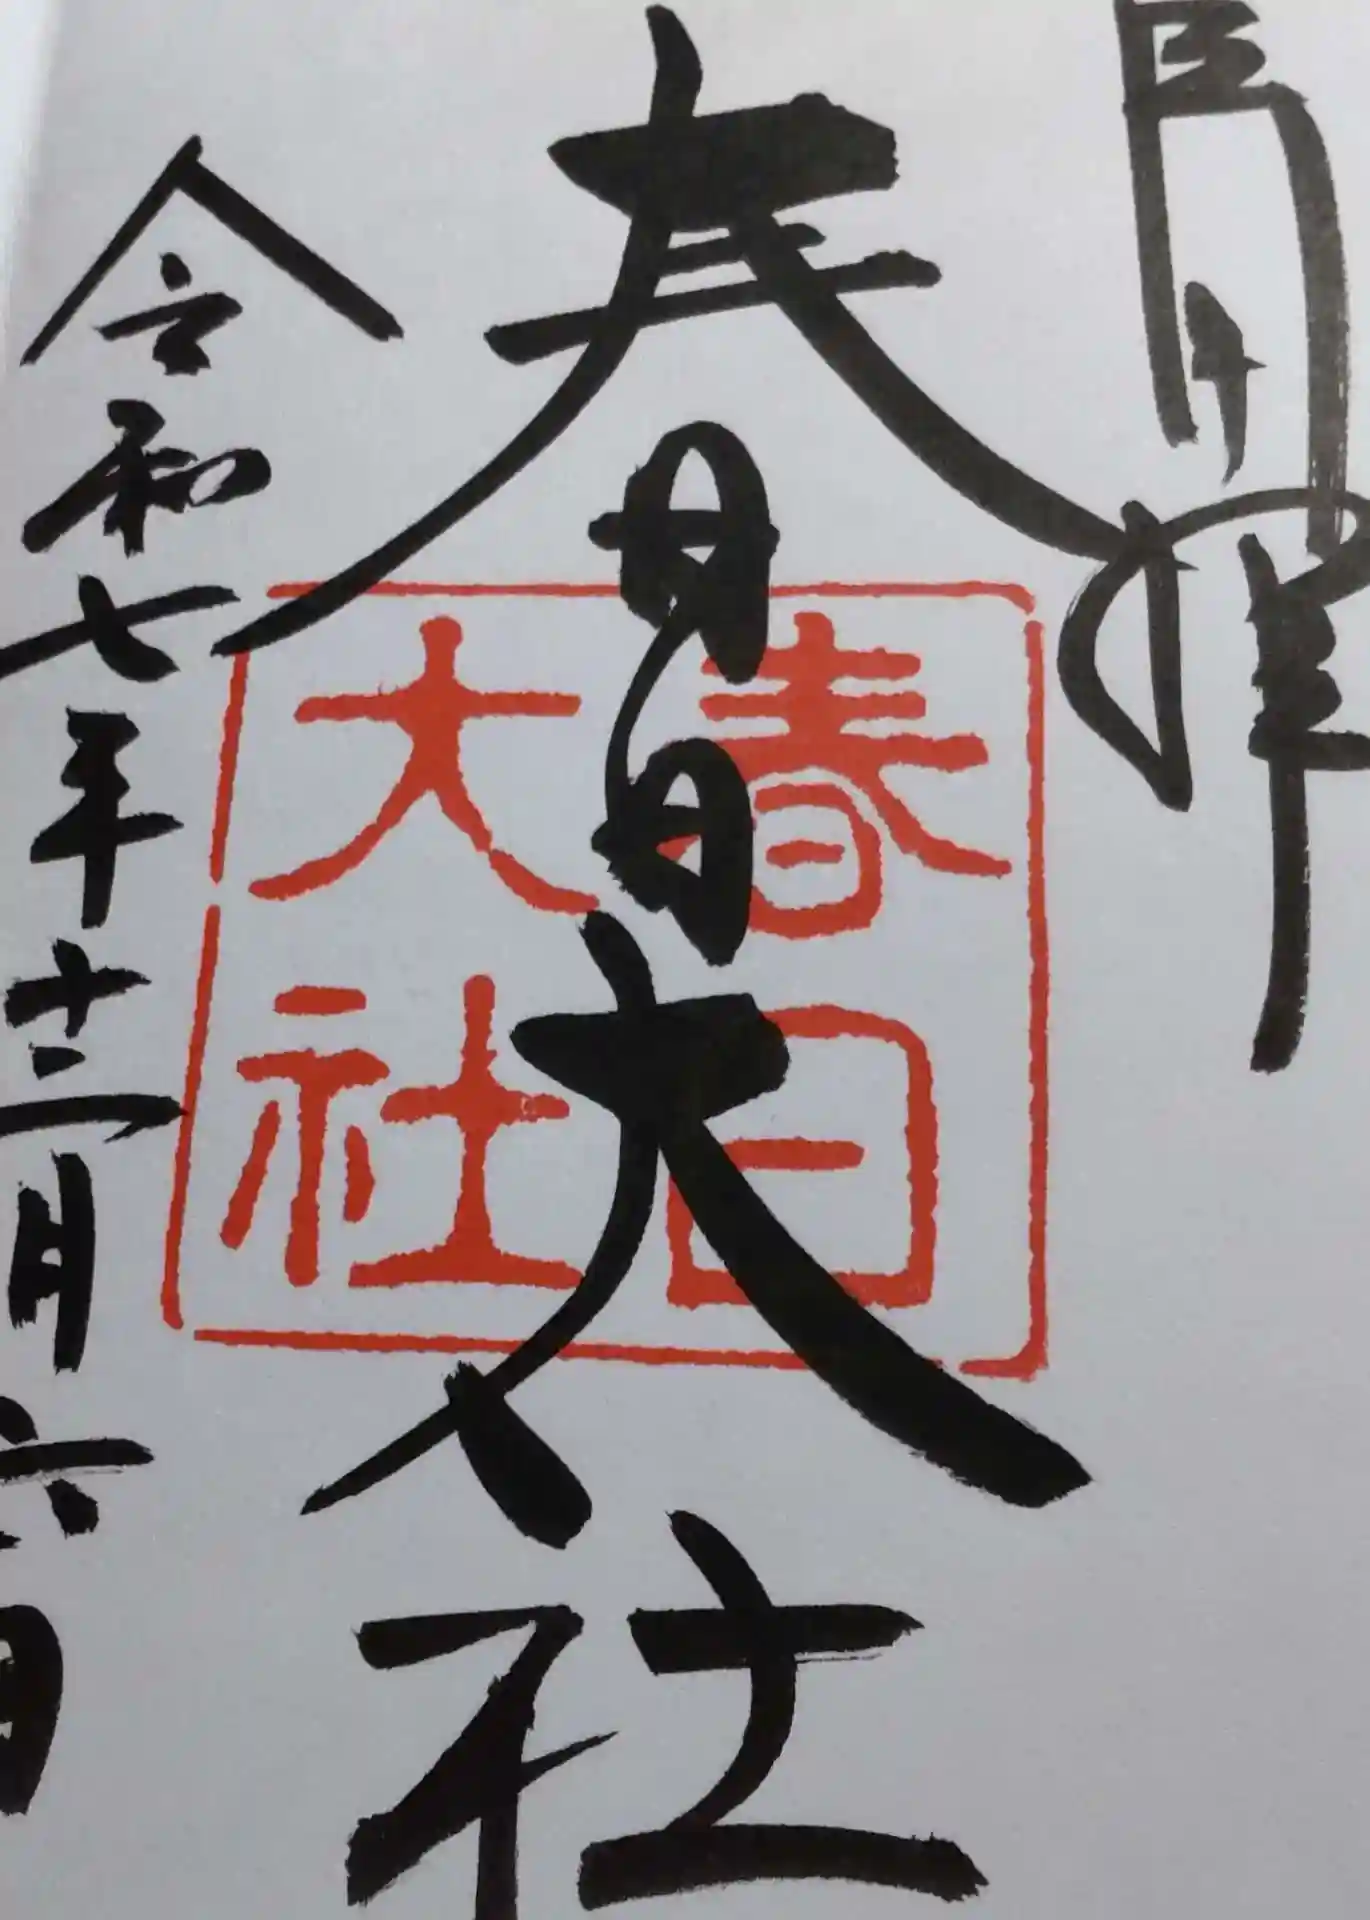 奉拝
春日大社
春日
大社
令和七年十二月六日